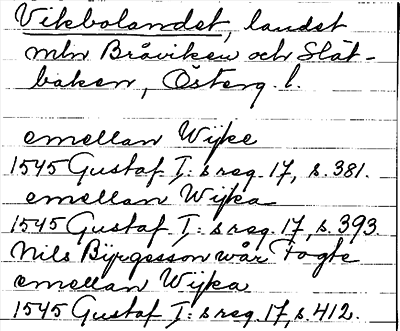 Vikbolandet, landet
mln Bråviken och Slät-
baken, Österg. l.
emellan Wijke
1545 Gustaf I:s reg. 17, s. 381.
emellan Wijka
1545 Gustaf I:s reg. 17, s. 393.
Nils Byrgesson wår Fogte
emellan Wijka
1545 Gustaf I:s reg. 17 s. 412.